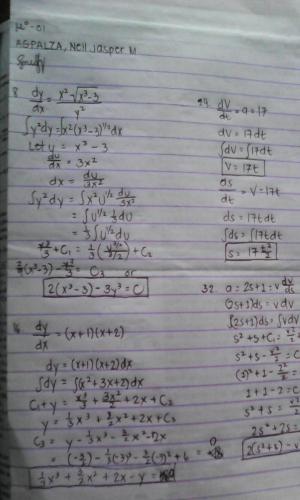 AGPALZA, Neil Jasper M
8. dy/dx = x²√(x³-3) / y²
∫y²dy = ∫x²(x³-3)^(1/2) dx
Let u = x³ - 3
du/dx = 3x²
dx = du/3x²
∫y²dy = ∫x² u^(1/2) du/3x²
= ∫u^(1/2) 1/3 du
= 1/3 ∫u^(1/2) du
+ C₁ = 1/3 (u^(3/2) / 3/2) + C₂
= C₃ or
2(x³-3) - 3y³ = C
16. dy/dx = (x+1)(x+2)
dy = (x+1)(x+2)dx
∫dy = ∫(x²+3x+2)dx
C₁+y = x³/3 + 3x²/2 + 2x + C₂
y = 1/3 x³ + 3/2 x² + 2x + C₃
C₃ = y - 1/3 x³ - 3/2 x² - 2x
1/3 x³ + 3/2 x² + 2x - y =
dV/dt = a = 17
dV = 17dt
∫dV = ∫17dt
V = 17t
ds/dt = V = 17t
ds = 17tdt
∫ds = ∫17tdt
s = 17 t²/2
32. a = 2s+1 = v dv/ds
(2s+1)ds = v dv
∫(2s+1)ds = ∫vdv
s²+s+C₁ =
s²+s- v²/2 = C
(1)²+1-
1+1-2 = C
s²+s =
2s²+2s =
2(s²+s) - v